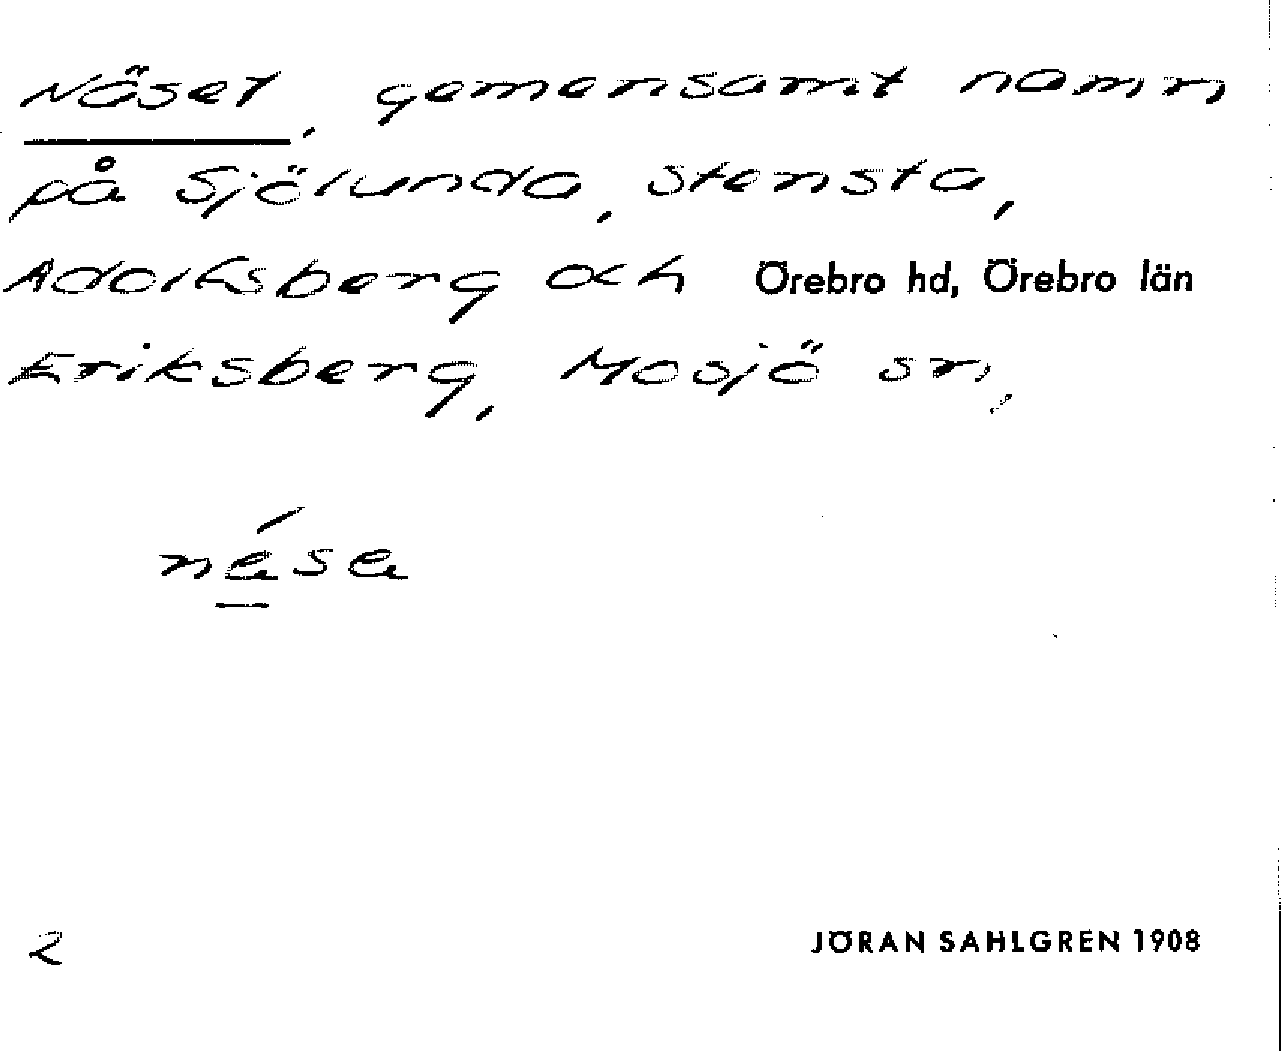 Näset, gemensamt namn
på Sjölunda, Stensta,
Adolfsberg och Örebro hd, Örebro län
Eriksberg, Mosjö sn,
nése
2
JÖRAN SAHLGREN 1908